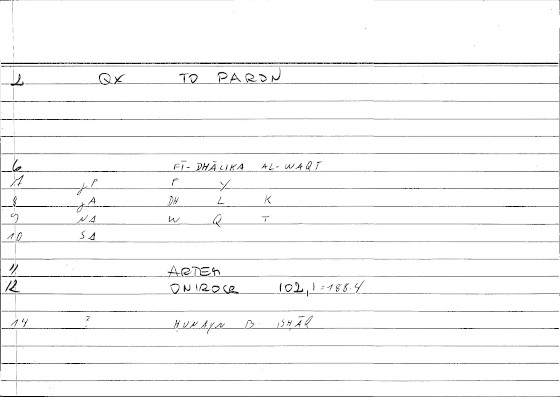 2 QX TO PARON
6 FĪ-DHĀLIKA AL-WAQT
7 JP F Y
8 JA DH L K
9 NA W Q T
10 SA
11 ARTEM
12 ONIROCR 102,1=188.4
14 ? HUNAYN B. ISHĀQ